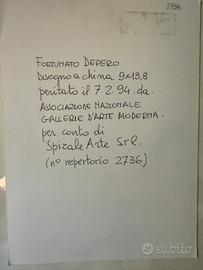 2736
FORTUNATO DEPERO
Disegno a china 9x13,8
peritato il 7.2.94 da
ASSOCIAZIONE NAZIONALE
GALLERIE D'ARTE MODERNA.
per conto di
Spirale Arte S.r.l.
(n° repertorio 2736)
subito